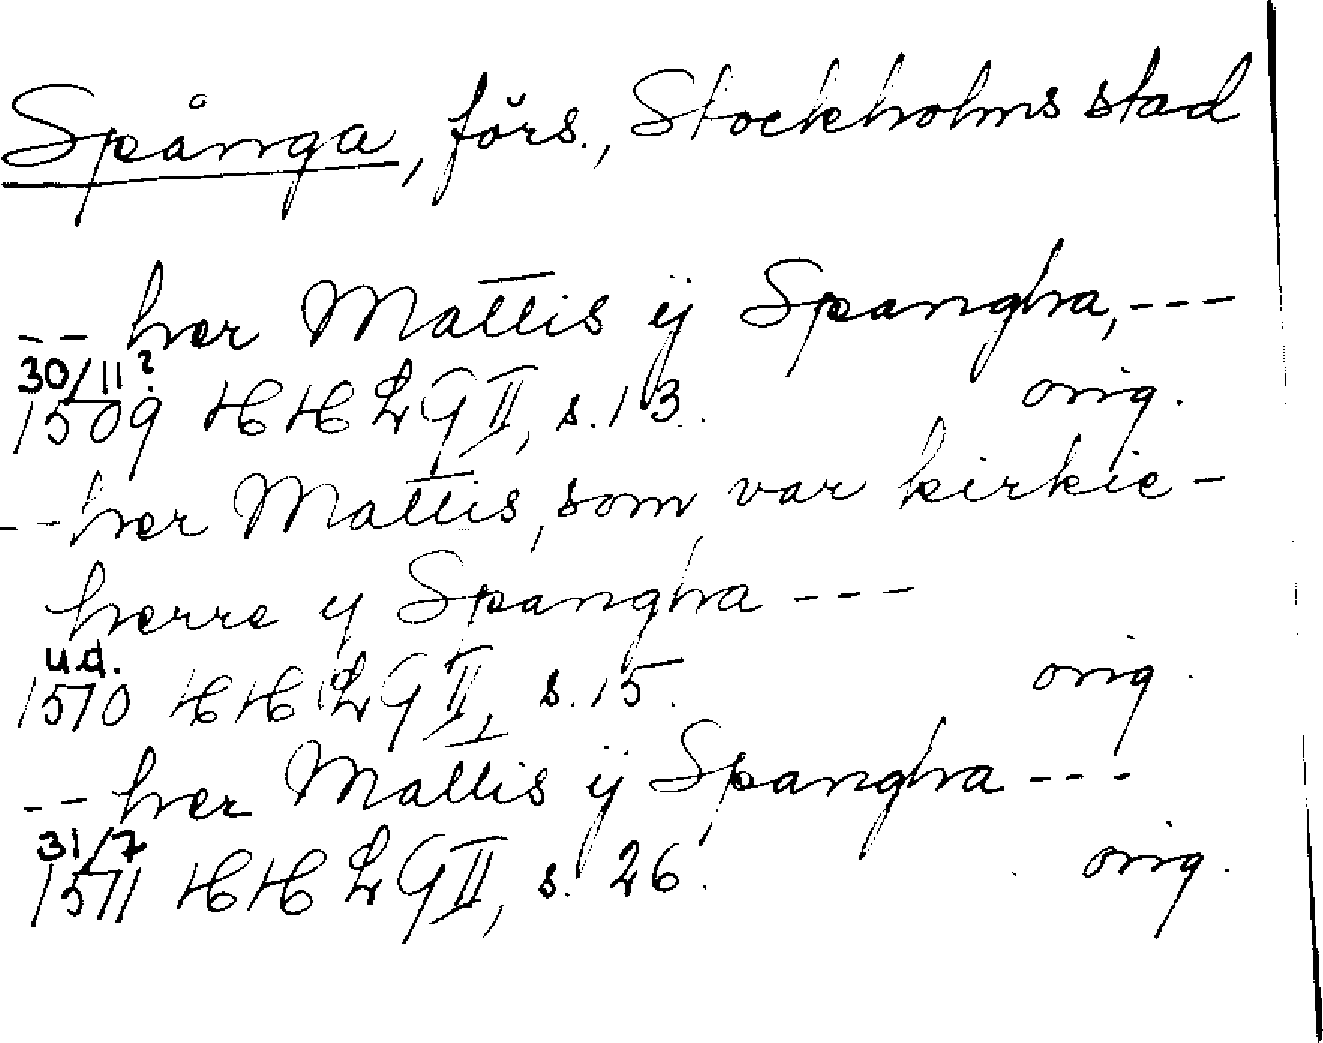 Spånga, förs., Stockholms stad
-- her Mattis ij Spangha, ---
30/11?
1509 HHLG II, s. 13. orig.
-- her Mattis, som var kirkie-
herre y Spangha ---
u.d.
1510 HHLG II, s. 15. orig.
-- her Mattis ij Spangha ---
31/7
1511 HHLG II, s. 26. orig.